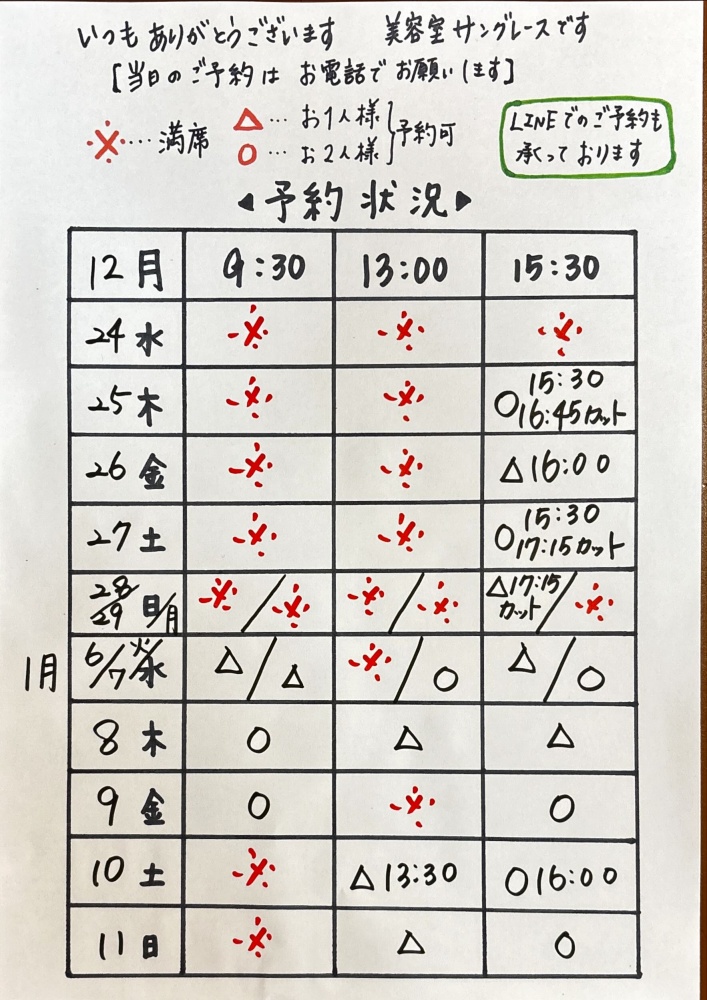 いつもありがとうございます 美容室サングレースです
[当日のご予約は お電話で お願いします]
※…満席 △…お1人様 ○…お2人様 予約可
LINEでのご予約も
承っております
◀予約状況▶
12月 9:30 13:00 15:30
24水 ※ ※ ※
25木 ※ ※ ○15:30 16:45カット
26金 ※ ※ △16:00
27土 ※ ※ ○15:30 17:15カット
28/29 日/月 ※/※ ※/※ △17:15カット/※
1月 6/7 火/水 △/△ ※/○ △/○
8木 ○ △ △
9金 ○ ※ ○
10土 ※ △13:30 ○16:00
11日 ※ △ ○